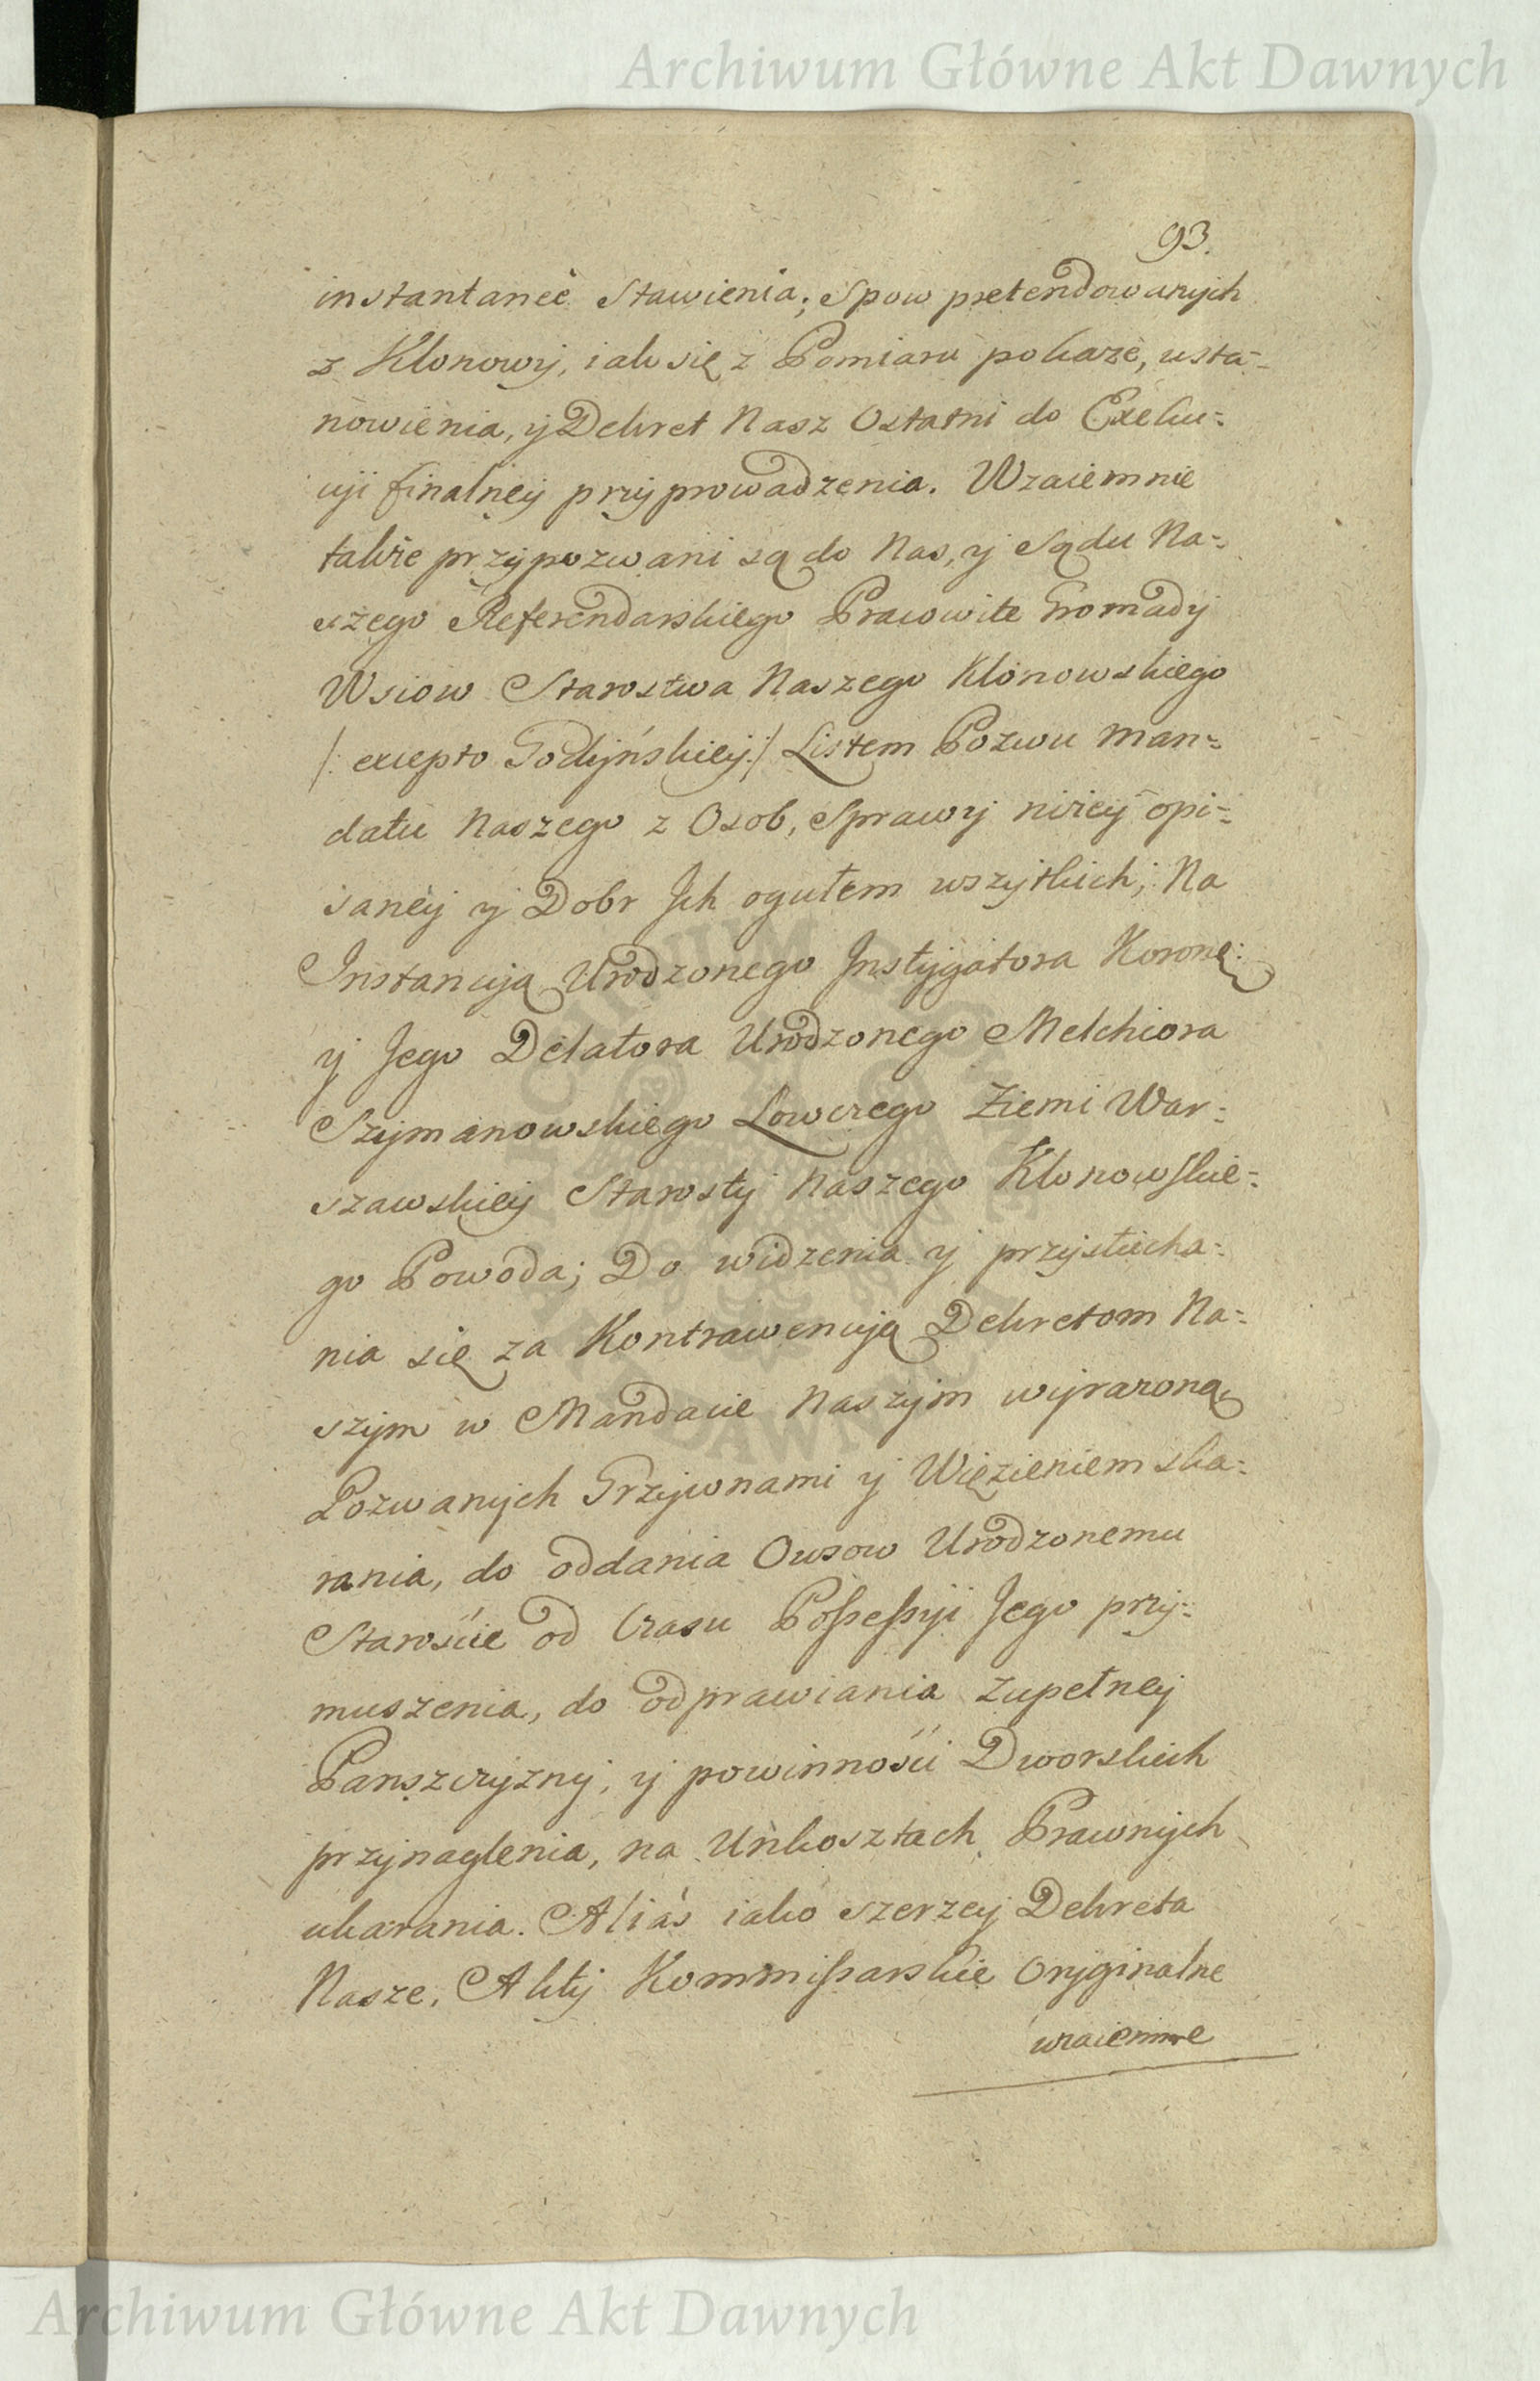 Archiwum Główne Akt Dawnych
93.
instantaneè Stawienia; Spow pretendowanych
z Klonowy, iak się z Pomiaru pokaże, usta-
nowienia, y Dekret Nasz Ostatni do Exeku-
cyi finalney przyprowadzenia. Wzaiemnie
także przypozwani są do Nas, y Sądu Na-
szego Referendarskiego Pracowite Gromady
Wsiow Starostwa Naszego Klonowskiego
/: excepto Godyńskiey :/ Listem Pozwu Man-
datu Naszego z Osob, Sprawy niżey opi-
saney y Dobr Jch ogułem wszystkich; Na
Instancyą Urodzonego Jnstygatora Koronę:
y Jego Delatora Urodzonego Melchiora
Szymanowskiego Łowczego Ziemi War-
szawskiey Starosty Naszego Klonowskie-
go Powoda; Do widzenia y przysłucha-
nia się za Kontrawencyą Dekretom Na-
szym w Mandacie Naszym wyrażoną
Pozwanych Grzywnami y Więzieniem ska-
rania, do oddania Owsow Urodzonemu
Staroście od Czasu Possessyi Jego przy-
muszenia, do odprawiania zupełney
Panszczyzny, y powinności Dworskich
przynaglenia, na Unkosztach Prawnych
ukarania. Aliàs iako szerzey Dekreta
Nasze, Akty Kommissarskie Oryginalne
wzaiemne
Archiwum Główne Akt Dawnych